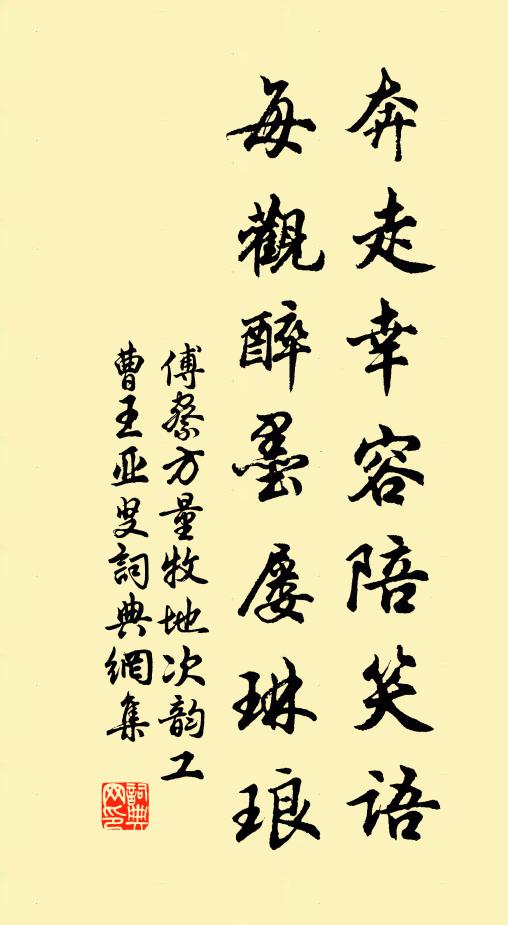 奔走幸容陪笑語
每觀醉墨屡琳琅
傅察方量牧地次韵工
曹王亚叟詞典網集
詞典网印